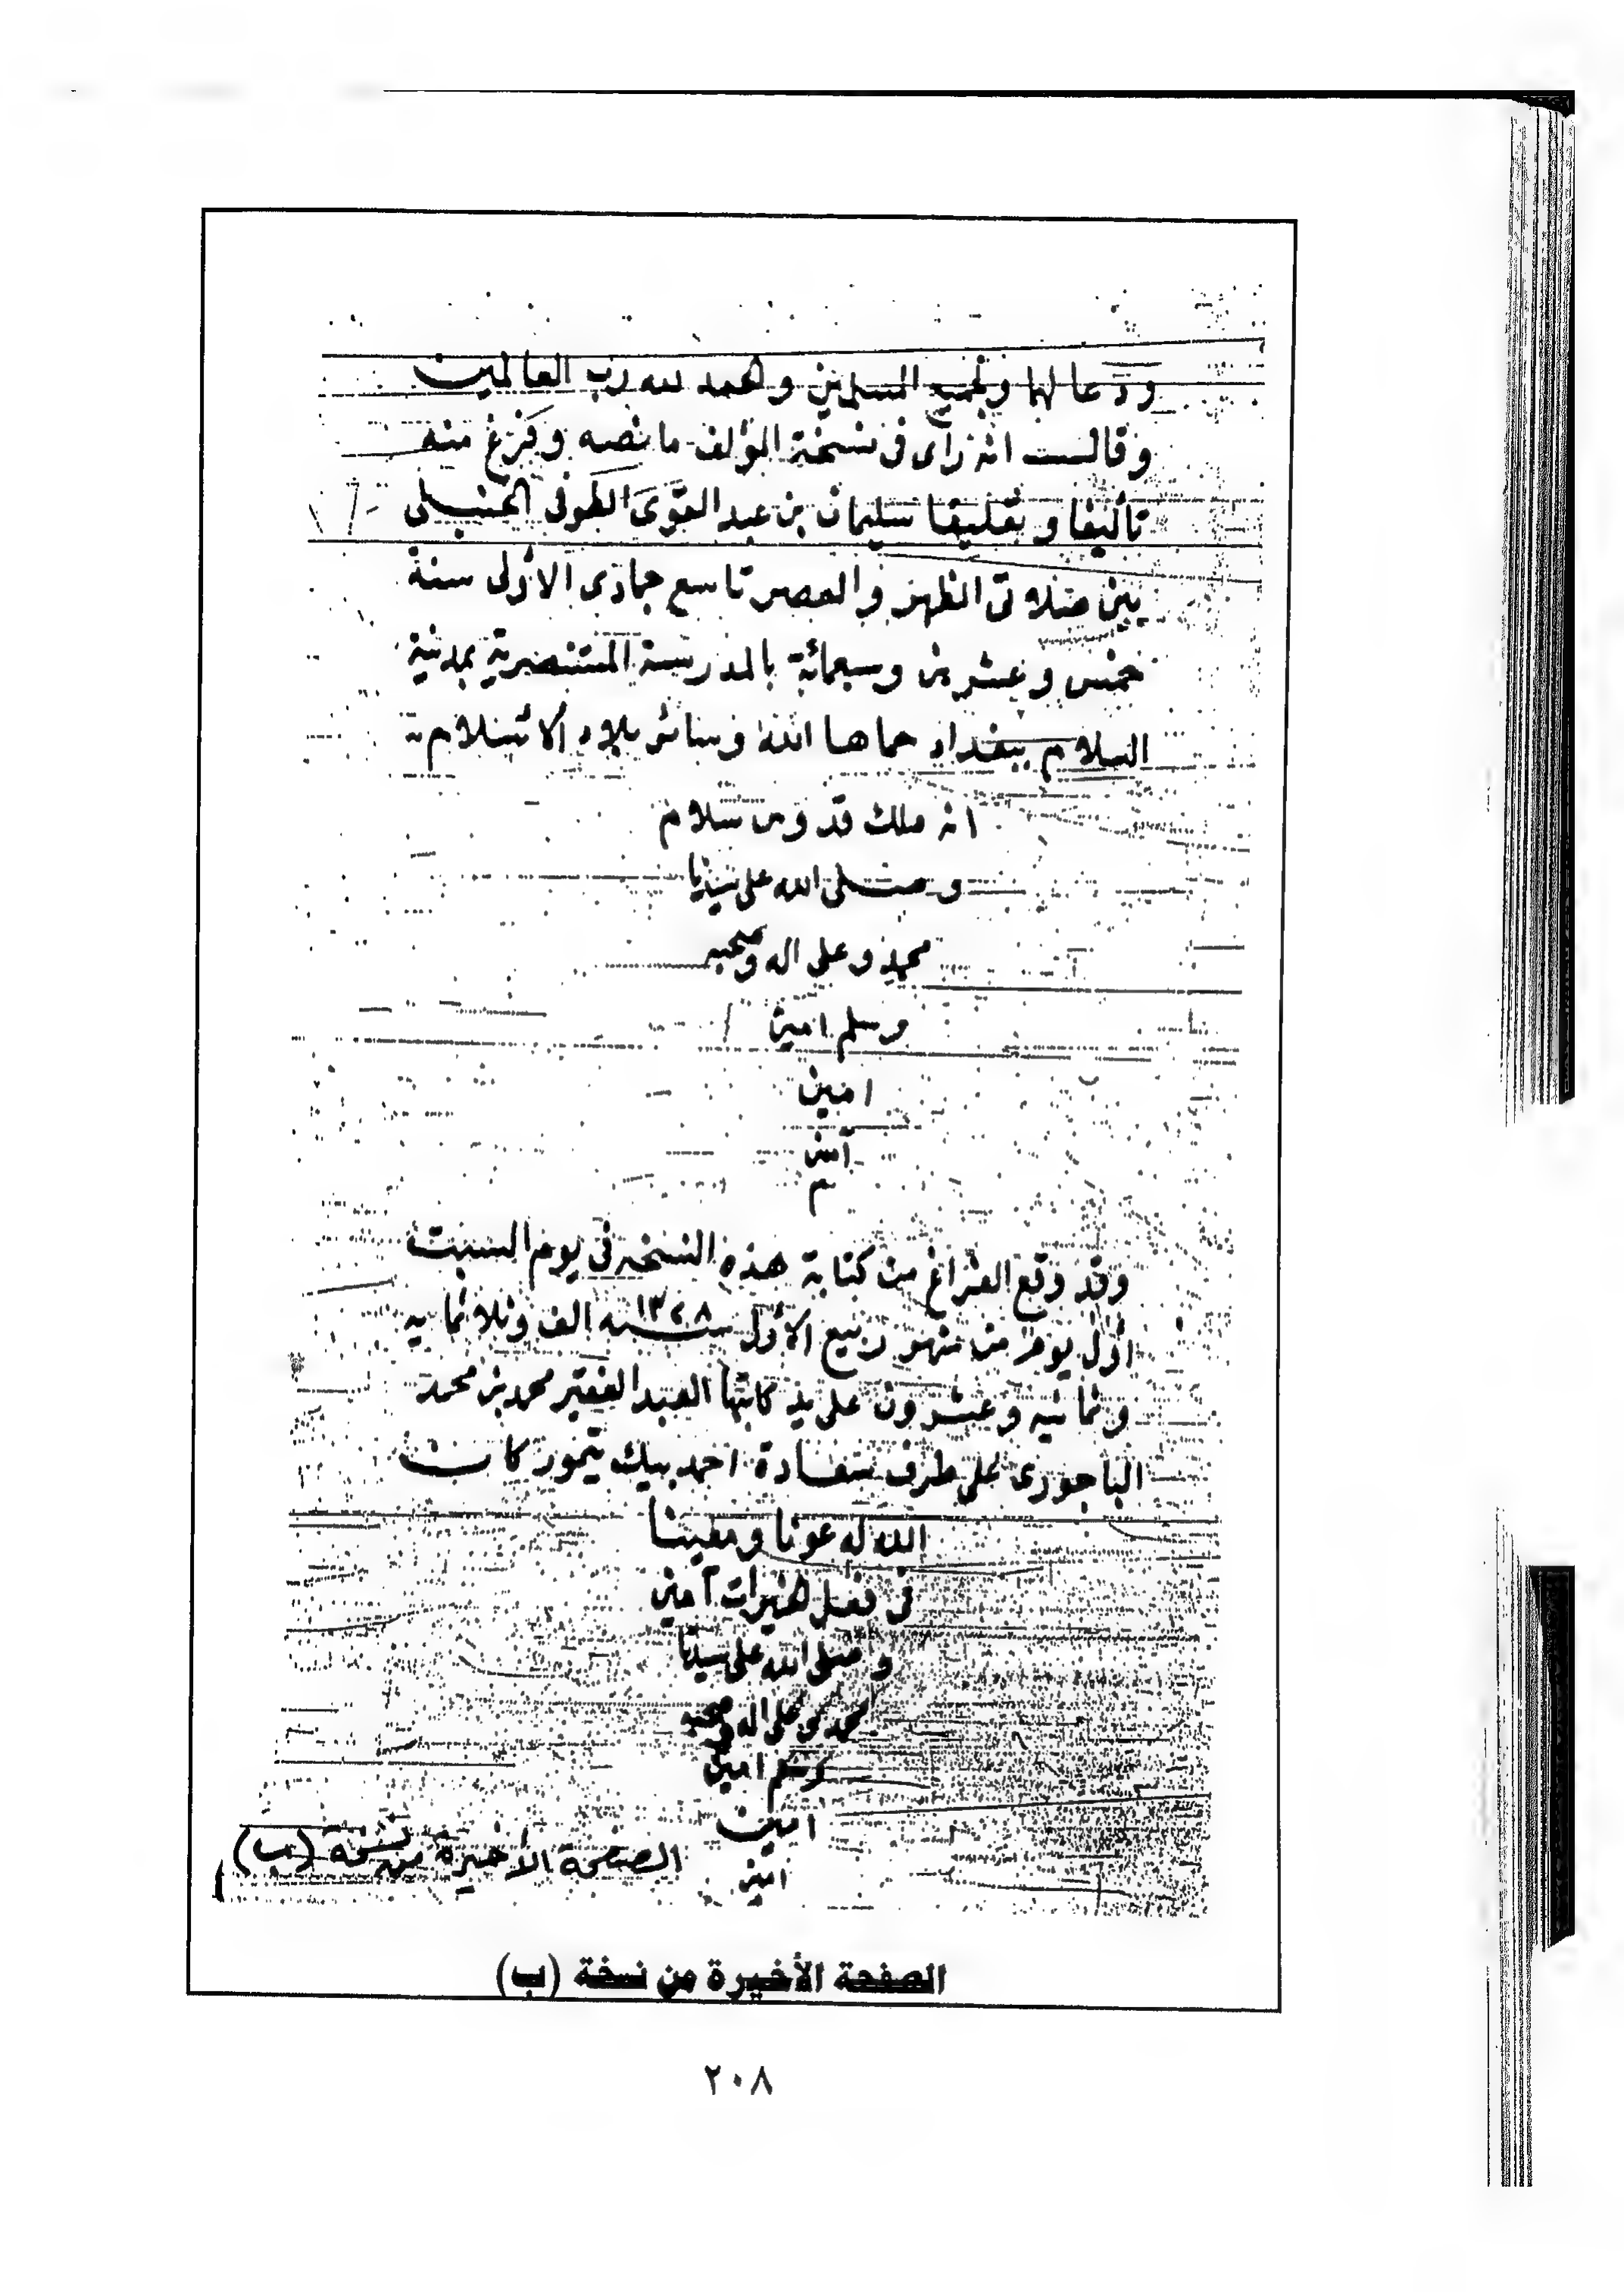 ودعا لهما ولجميع المسلمين والحمد لله رب العالمين
وقالــت انه رأى في نسخة المؤلف ما نصه وفرغ منه
تأليفا وتعليقا سليمان بن عبد القوى الطوفى الحنبلى
بين صلاتى الظهر والعصر تاسع جمادى الأولى سنة
خمس وعشرين وسبعمائة بالمدرسة المستنصرية بمدينة
السلام ببغداد حماها الله وسائر بلاد الاسلام
انه ملك قدوس سلام
وصلى الله على سيدنا
محمد وعلى اله وصحبه
وسلم امين
امين
آمين
م
وقد وقع الفراغ من كتابة هذه النسخه في يوم السبت
اول يوم من شهر ربيع الأول سنه ١٣٢٨ الف وثلاثمايه
وثمانيه وعشرون على يد كاتبها العبد الفقير محمد بن محمد
الباجورى على طرف سعادة احمد بيك تيمور كان
الله له عونا ومعينا
فى فعل الخيرات آمين
وصلى الله على سيدنا
محمد وعلى اله وصحبه
وسلم امين
امين
امين
الصفحة الأخيرة من نسخة (ب)
الصفحة الأخيرة من نسخة (ب)
٢٠٨